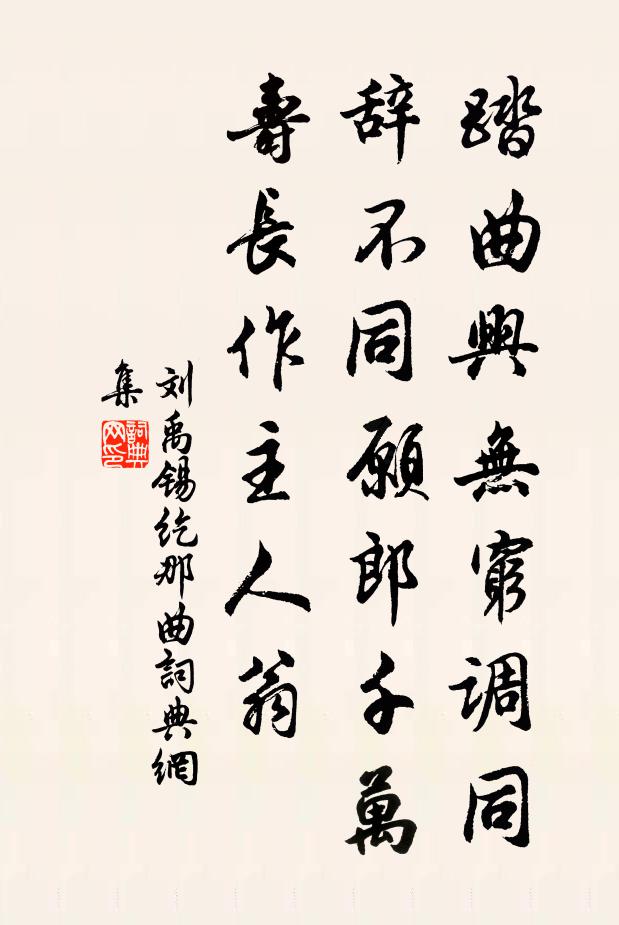 踏曲興無窮调同
辞不同願郎千萬
壽長作主人翁
刘禹锡纥那曲詞典網
集
詞典
网印